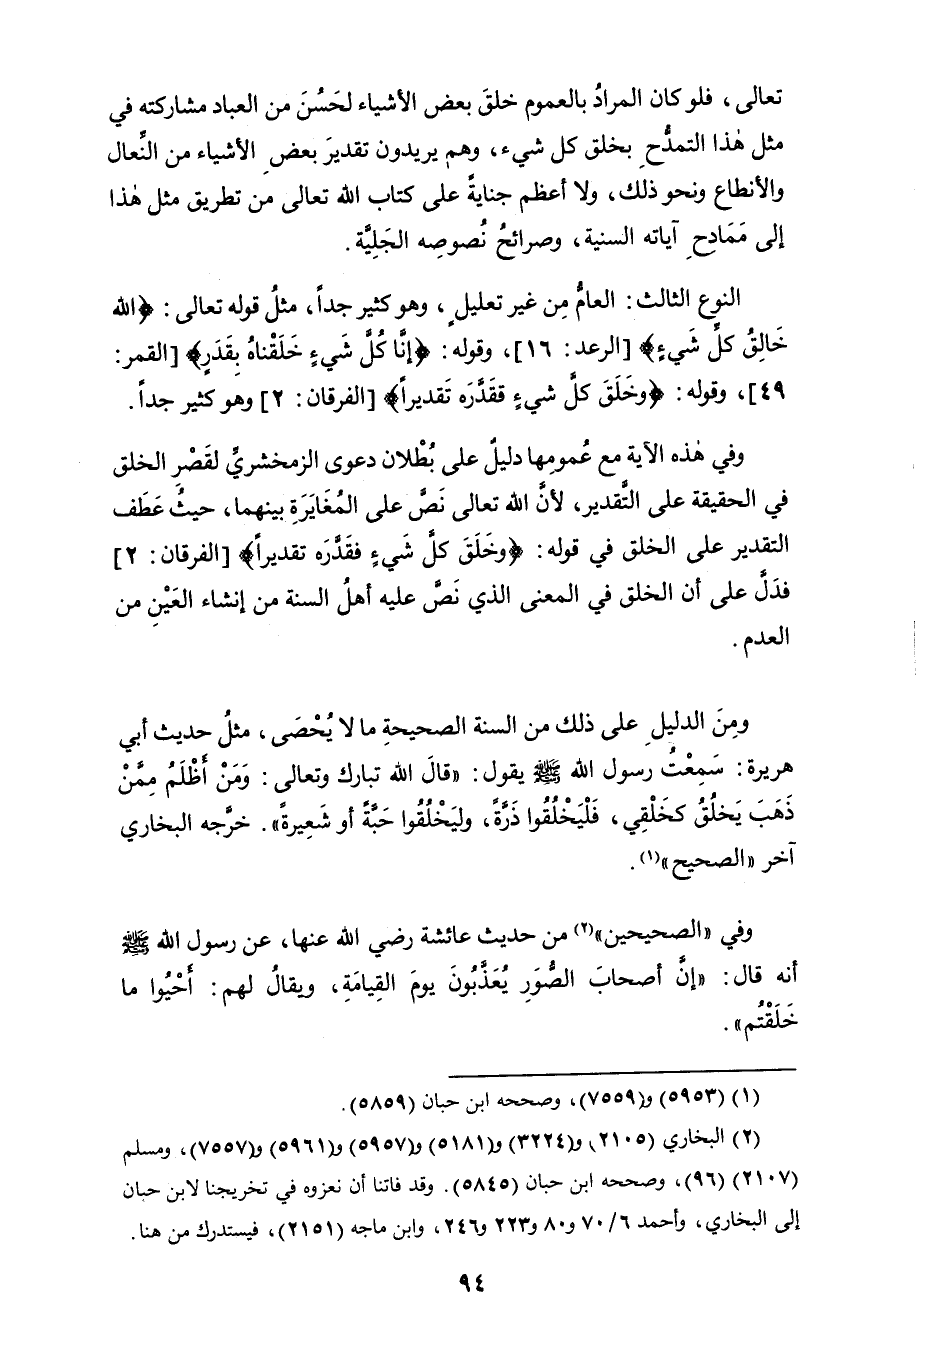 تعالى، فلو كان المرادُ بالعموم خلقَ بعض الأشياء لحَسُنَ من العباد مشاركته في
مثل هٰذا التمدُّح بخلق كل شيء، وهم يريدون تقديرَ بعضِ الأشياء من النِّعال
والأنطاع ونحو ذلك، ولا أعظم جنايةً على كتاب الله تعالى من تطريق مثل هٰذا
إلى مَمَادِحِ آياته السنية، وصرائحُ نُصوصِه الجَلِيَّة.
النوع الثالث: العامُّ مِن غير تعليلٍ، وهو كثير جداً، مثلُ قوله تعالى: ﴿الله
خَالِقُ كلِّ شَيءٍ﴾ [الرعد: ١٦]، وقوله: ﴿إنَّا كُلَّ شَيءٍ خَلَقْناهُ بِقَدَرٍ﴾ [القمر:
٤٩]، وقوله: ﴿وخَلَقَ كلَّ شيءٍ فقَدَّرَه تَقديراً﴾ [الفرقان: ٢] وهو كثير جداً.
وفي هٰذه الآية مع عُمومِها دليلٌ على بُطْلان دعوى الزمخشريِّ لقَصْرِ الخلق
في الحقيقة على التَّقدير، لأنَّ الله تعالى نَصَّ على المُغَايَرَةِ بينهما، حيثُ عَطَف
التقدير على الخلق في قوله: ﴿وخَلَقَ كلَّ شَيءٍ فقَدَّرَه تقديراً﴾ [الفرقان: ٢]
فدَلَّ على أن الخلق في المعنى الذي نَصَّ عليه أهلُ السنة من إنشاء العَيْنِ من
العدم.
ومِنَ الدليلِ على ذلك من السنة الصحيحةِ ما لا يُحْصَى، مثلُ حديث أبي
هريرة: سَمِعْتُ رسول الله ﷺ يقول: «قالَ الله تبارك وتعالى: وَمَنْ أَظْلَمُ مِمَّنْ
ذَهَبَ يَخلُقُ كخَلْقِي، فَلْيَخْلُقُوا ذَرَّةً، وليَخْلُقُوا حَبَّةً أو شَعِيرةً». خرَّجه البخاري
آخر «الصحيح»(١).
وفي «الصحيحين»(٢) من حديث عائشة رضي الله عنها، عن رسول الله ﷺ
أنه قال: «إنَّ أصحابَ الصُّوَرِ يُعَذَّبُونَ يومَ القِيامَةِ، ويقالُ لهم: أَحْيُوا ما
خَلَقْتُم».
(١) (٥٩٥٣) و(٧٥٥٩)، وصححه ابن حبان (٥٨٥٩).
(٢) البخاري (٢١٠٥) و(٣٢٢٤) و(٥١٨١) و(٥٩٥٧) و(٥٩٦١) و(٧٥٥٧)، ومسلم
(٢١٠٧) (٩٦)، وصححه ابن حبان (٥٨٤٥). وقد فاتنا أن نعزوه في تخريجنا لابن حبان
إلى البخاري، وأحمد ٦/ ٧٠ و٨٠ و٢٢٣ و٢٤٦، وابن ماجه (٢١٥١)، فيستدرك من هنا.
٩٤